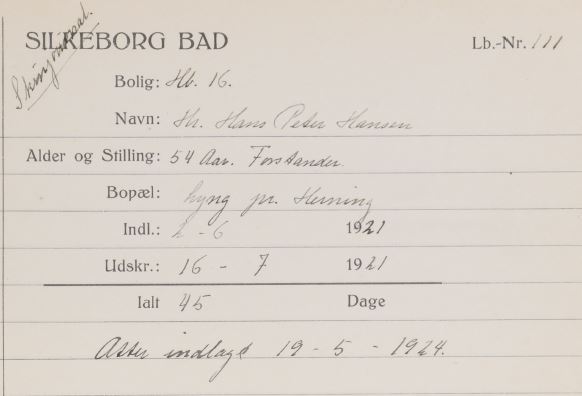 SILKEBORG BAD
Lb.-Nr. 111
Bolig: Hb. 16.
Navn: Hr. Hans Peter Hansen
Alder og Stilling: 54 Aar. Forstander
Bopæl: Lyng pr. Herning
Indl.: 2 - 6 1921
Udskr.: 16 - 7 1921
Ialt 45 Dage
Atter indlagt 19 - 5 - 1924.